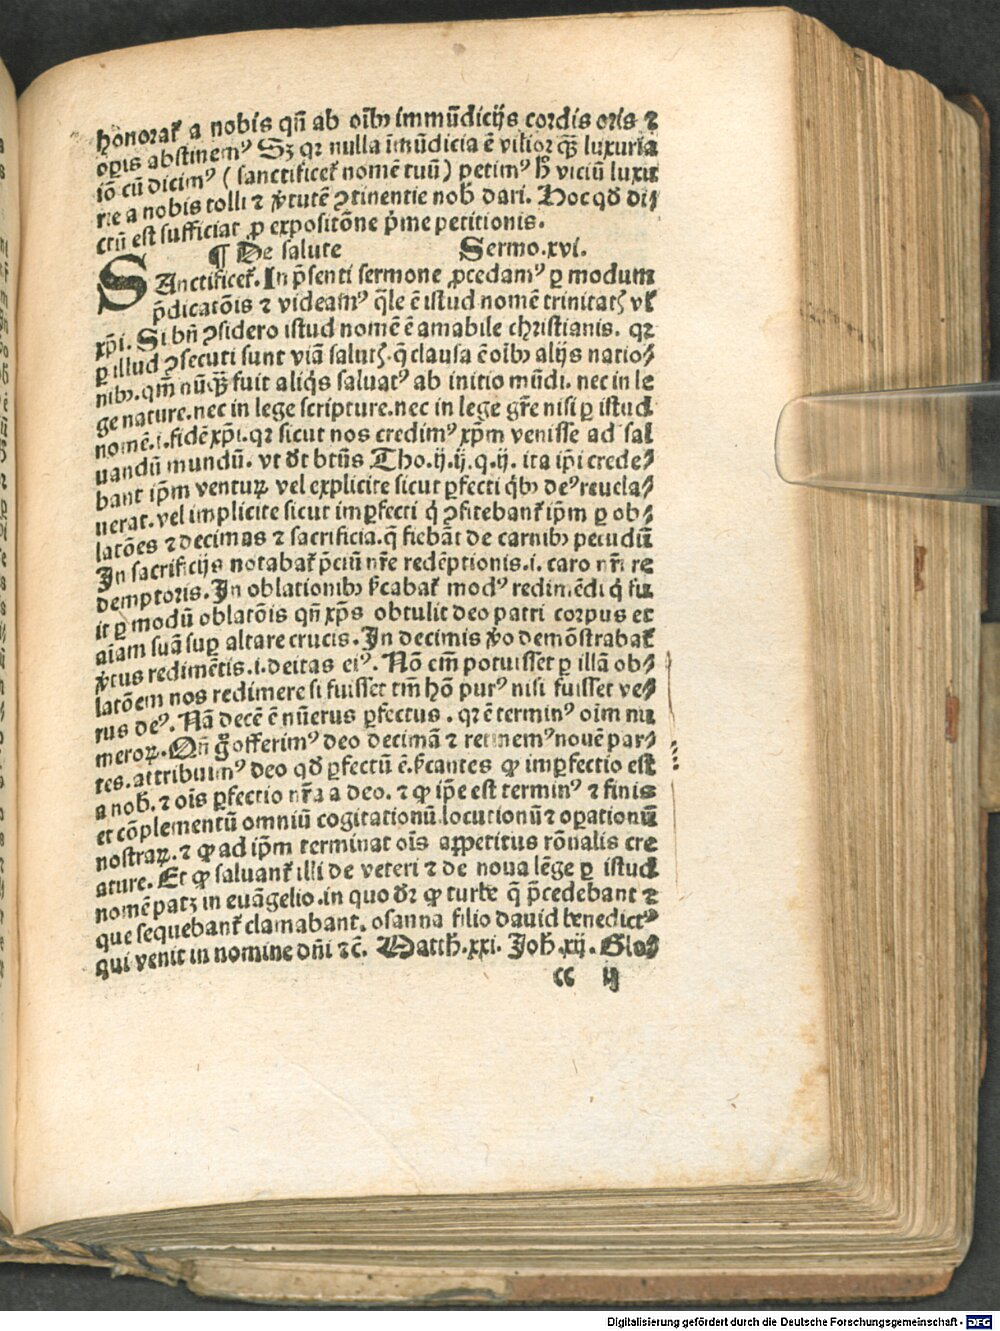 honorat᷑ a nobis qn̄ ab oı̄bꝫ immūdicijs cordis oris ⁊
oꝑis abstinemꝰ Sꝫ qꝛ nulla īmūdicia ē vilior qͣꝫ luxuria
iō cū dicimꝰ (sanctificet᷑ nomē tuū) petimꝰ ħ viciū luxu
rie a nobis tolli ⁊ v̓tutē ꝯtinentie nob̄ dari. Hoc qḋ di⸗
ctū est sufficiat ꝓ expositōne p̄me petitionis.
¶ De salute Sermo.xvi.
SAnctificet᷑. In p̄senti sermone ꝓcedamꝰ ꝑ modum
p̄dicatōis ⁊ videamꝰ q̄le ē istud nomē trinitatꝭ vl̓
xp̄i. Si bn̄ ꝯsidero istud nomē ē amabile christianis. qꝛ
ꝑ illud ꝯsecuti sunt viā salutꝭ. q̄ clausa ē oı̄bꝫ alijs natio⸗
nibꝫ. qm̄ nūqͣꝫ fuit aliq̇s saluatꝰ ab initio mūdi. nec in le
ge nature. nec in lege scripture. nec in lege gr̄e nisi ꝑ istud
nomē .i. fidē xp̄i. qꝛ sicut nos credimꝰ xp̄m venisse ad sal
uandū mundū. vt ḋt btūs Tho.ij.ij.q.ij. ita ip̄i crede⸗
bant ip̄m venturꝝ vel explicite sicut ꝑfecti q̇bꝫ deꝰ reuela⸗
uerat. vel implicite sicut imꝑfecti q̇ ꝯfitebant᷑ ip̄m ꝑ ob⸗
latōes ⁊ decimas ⁊ sacrificia. q̄ fiebāt de carnibꝫ pecudū
In sacrificijs notabat᷑ p̄ciū nr̄e redēptionis .i. caro nr̄i re
demptoris. In oblationibꝫ ſ̓cabat᷑ modꝰ redimēdi q̇ fu
it ꝑ modū oblatōis qn̄ xp̄s obtulit deo patri corpus et
aı̄am suā suꝑ altare crucis. In decimis v̓o demōstrabat᷑
v̓tus redimētis .i. deitas eiꝰ. Nō em̄ potuisset ꝑ illā ob⸗
latōem nos redimere si fuisset tm̄ hō purꝰ nisi fuisset ve⸗
rus deꝰ. Nā decē ē nūerus ꝑfectus. qꝛ ē terminꝰ oı̄m nu
meroꝝ. Qn̄ gͦ offerimꝰ deo decimā ⁊ retinemꝰ nouē par⸗
tes. attribuimꝰ deo qḋ ꝑfectū ē. ſ̓cantes ꝙ imꝑfectio est
a nob̄. ⁊ oı̄s ꝑfectio nr̄a a deo. ⁊ ꝙ ip̄e est terminꝰ ⁊ finis
et cōplementū omniū cogitationū locutionū ⁊ oꝑationū
nostraꝝ. ⁊ ꝙ ad ip̄m terminat oı̄s appetitus rōnalis cre
ature. Et ꝙ saluant᷑ illi de veteri ⁊ de noua lēge ꝑ istud
nomē patꝫ in euāgelio. in quo ḋr ꝙ turbe q̄ p̄cedebant ⁊
que sequebant᷑ clamabant. osanna filio dauid benedictꝰ
qui venit in nomine dn̄i ⁊c̄. Matth̄.xxi. Joh̄.xij. Glo⸗
cc ij
Digitalisierung gefördert durch die Deutsche Forschungsgemeinschaft - DFG